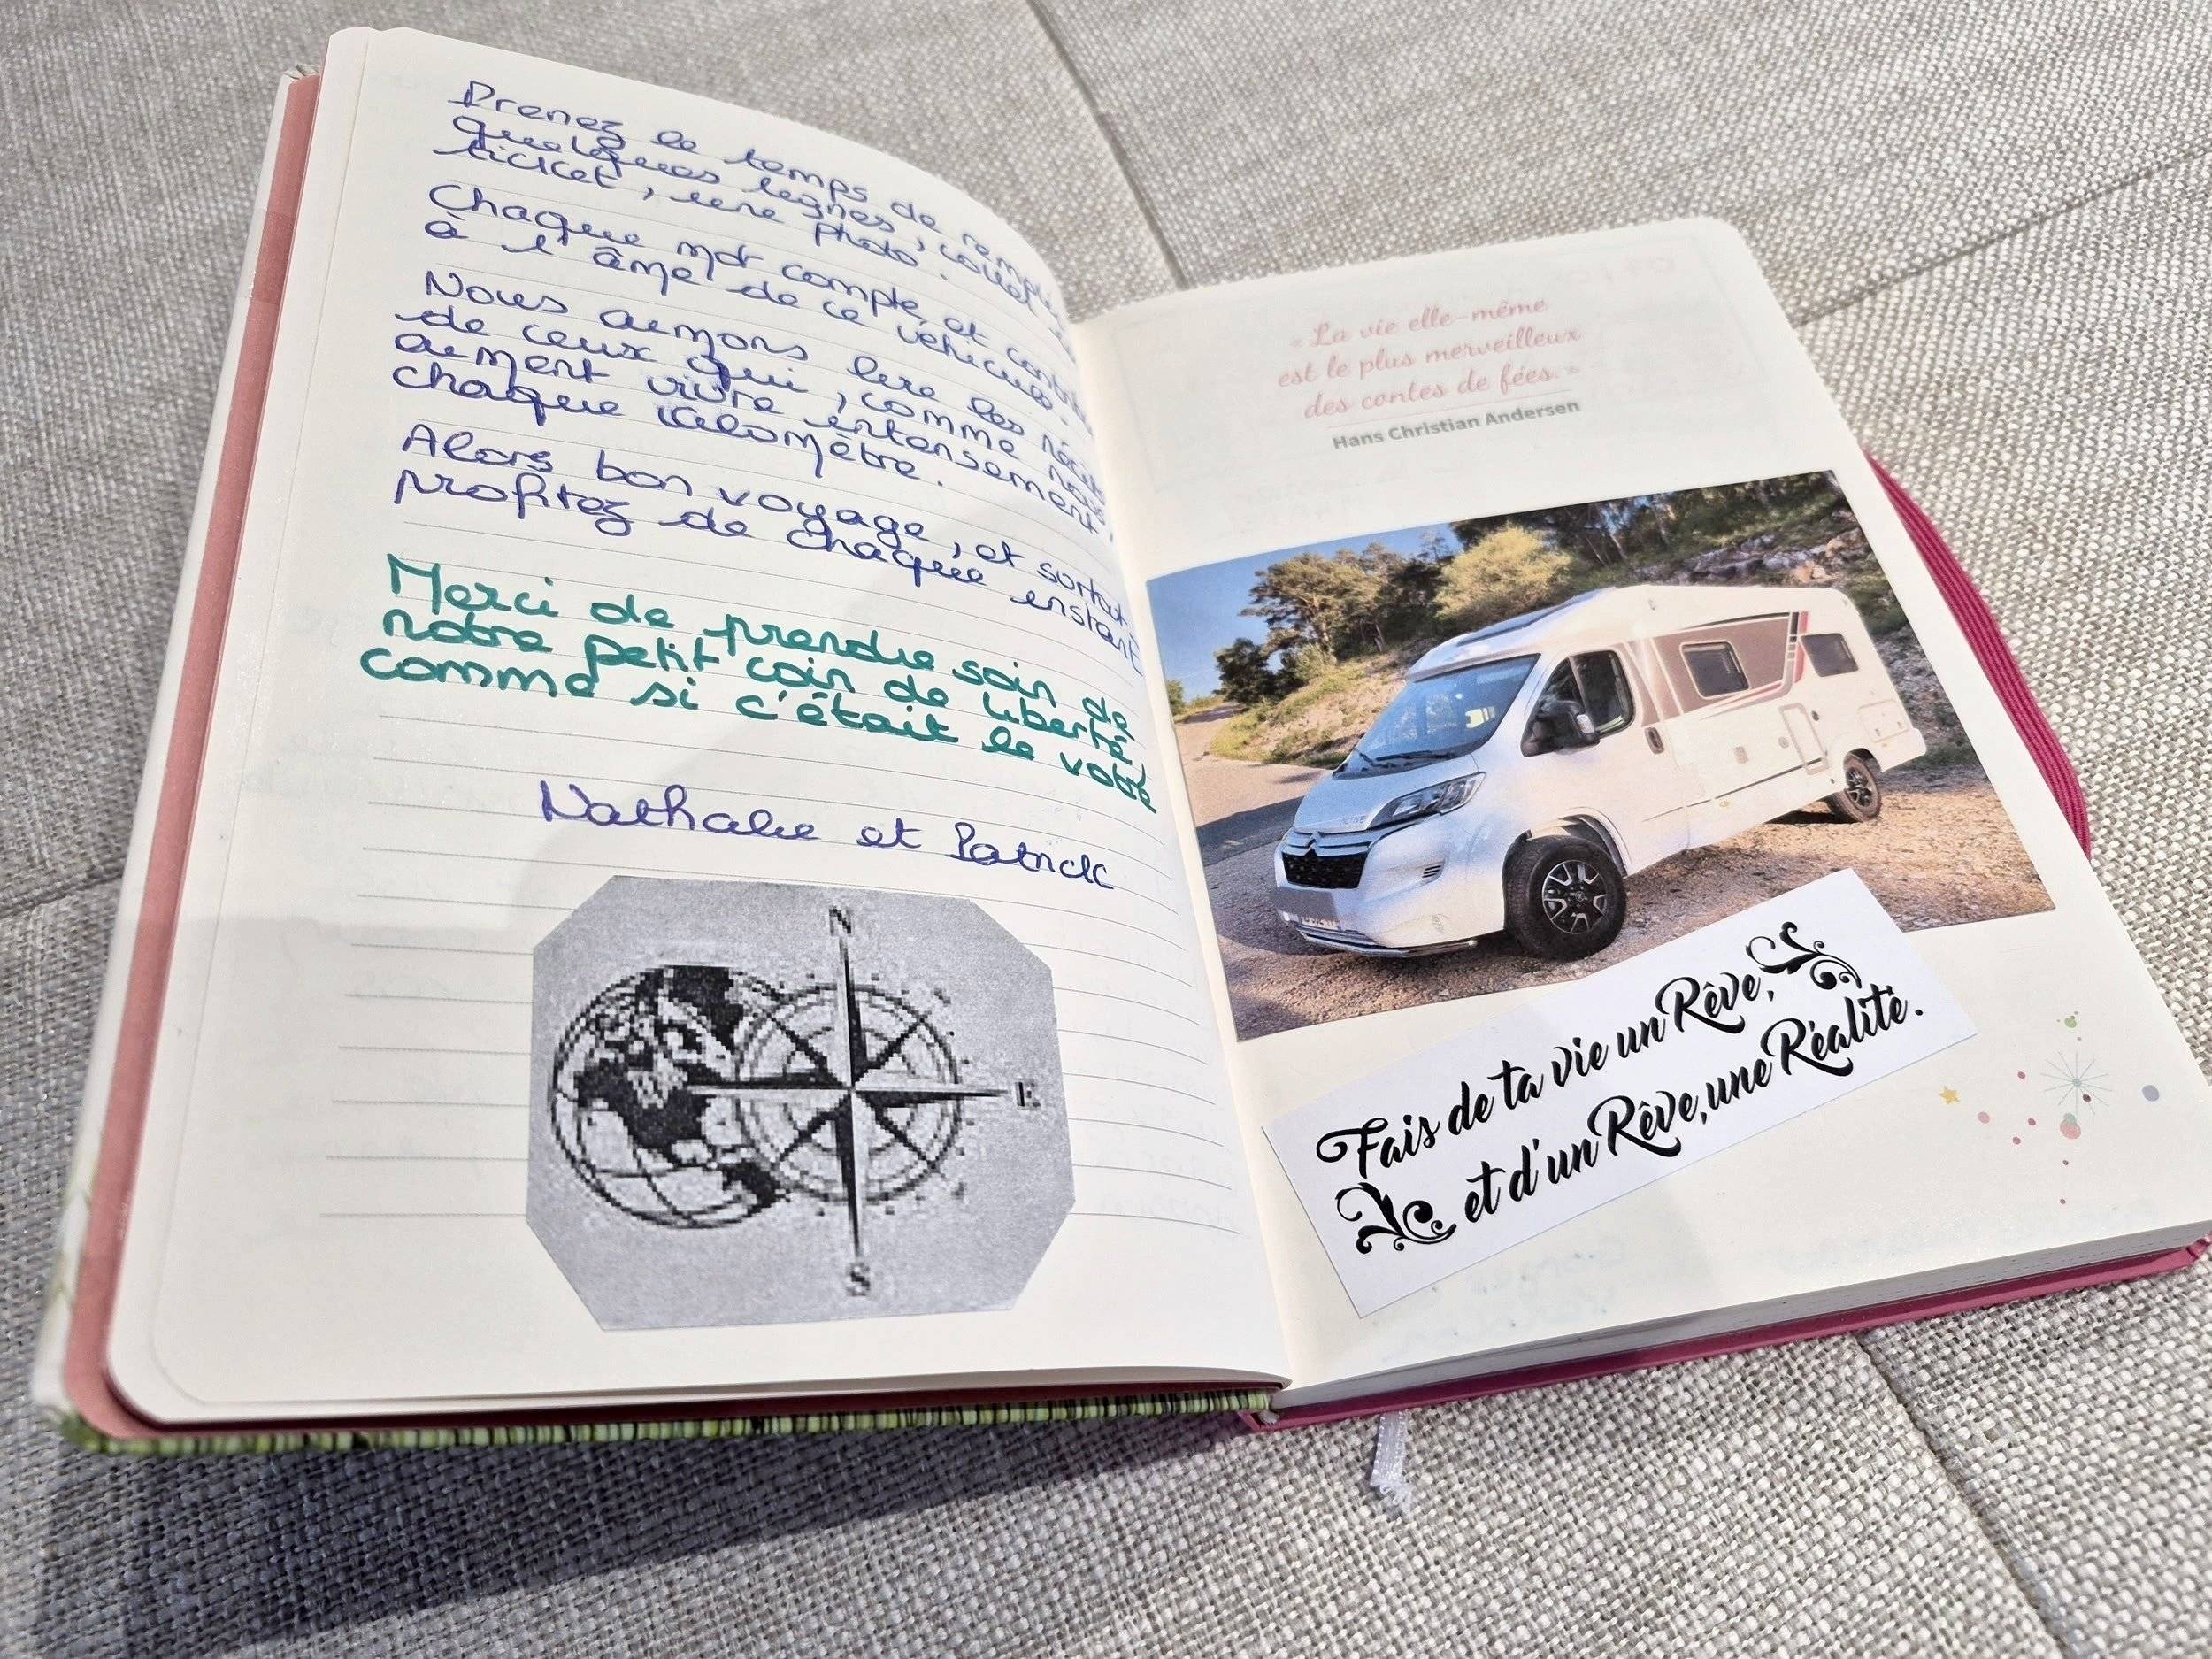 Prenez le temps de remplir
quelques lignes, coller un
ticket, une photo.
Chaque mot compte et contribue
à l'âme de ce véhicule.
Nous aimons lire les récits
de ceux qui, comme nous
aiment vivre intensément,
chaque kilomètre.
Alors bon voyage, et surtout
profitez de chaque instant
Merci de prendre soin de
notre petit coin de liberté,
comme si c'était le votre
Nathalie et Patrick
N
E
S
« La vie elle-même
est le plus merveilleux
des contes de fées. »
Hans Christian Andersen
ACTIVE
Fais de ta vie un Rêve,
et d'un Rêve, une Réalité.